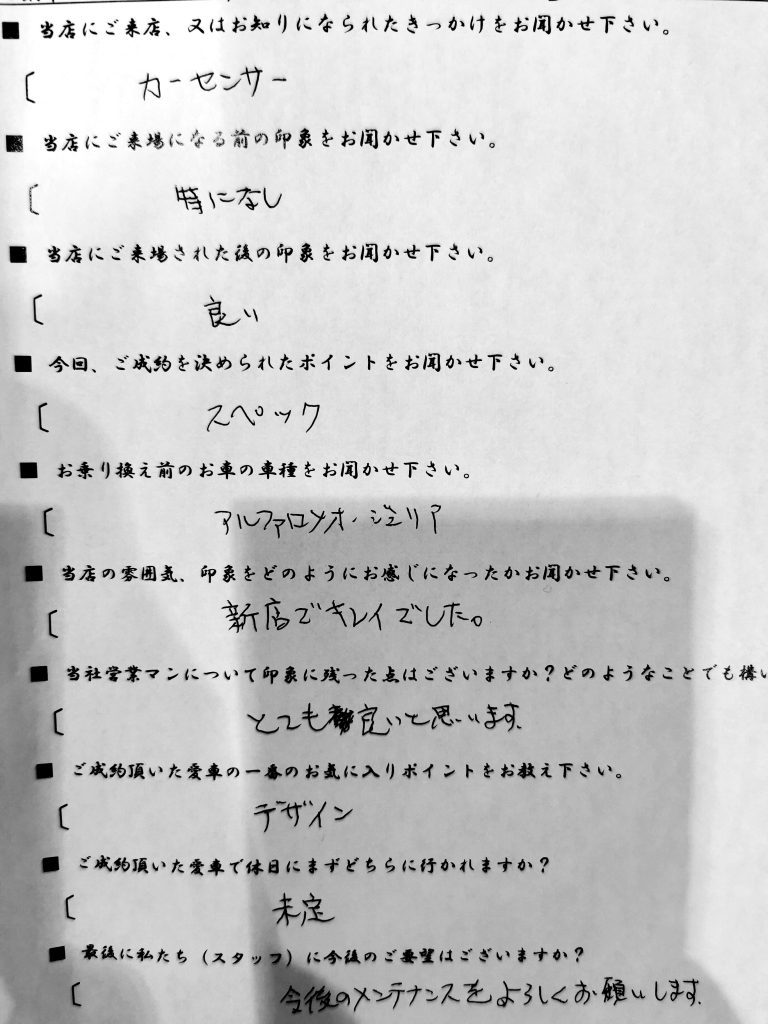 ■ 当店にご来店、又はお知りになられたきっかけをお聞かせ下さい。
〔 カーセンサー
■ 当店にご来場になる前の印象をお聞かせ下さい。
〔 特になし
■ 当店にご来場された後の印象をお聞かせ下さい。
〔 良い
■ 今回、ご成約を決められたポイントをお聞かせ下さい。
〔 スペック
■ お乗り換え前のお車の車種をお聞かせ下さい。
〔 アルファロメオ・ジュリア
■ 当店の雰囲気、印象をどのようにお感じになったかお聞かせ下さい。
〔 新店でキレイでした。
■ 当社営業マンについて印象に残った点はございますか？どのようなことでも構い
〔 とても良いと思います。
■ ご成約頂いた愛車の一番のお気に入りポイントをお教え下さい。
〔 デザイン
■ ご成約頂いた愛車で休日にまずどちらに行かれますか？
〔 未定
■ 最後に私たち（スタッフ）に今後のご要望はございますか？
〔 今後のメンテナンスをよろしくお願いします。